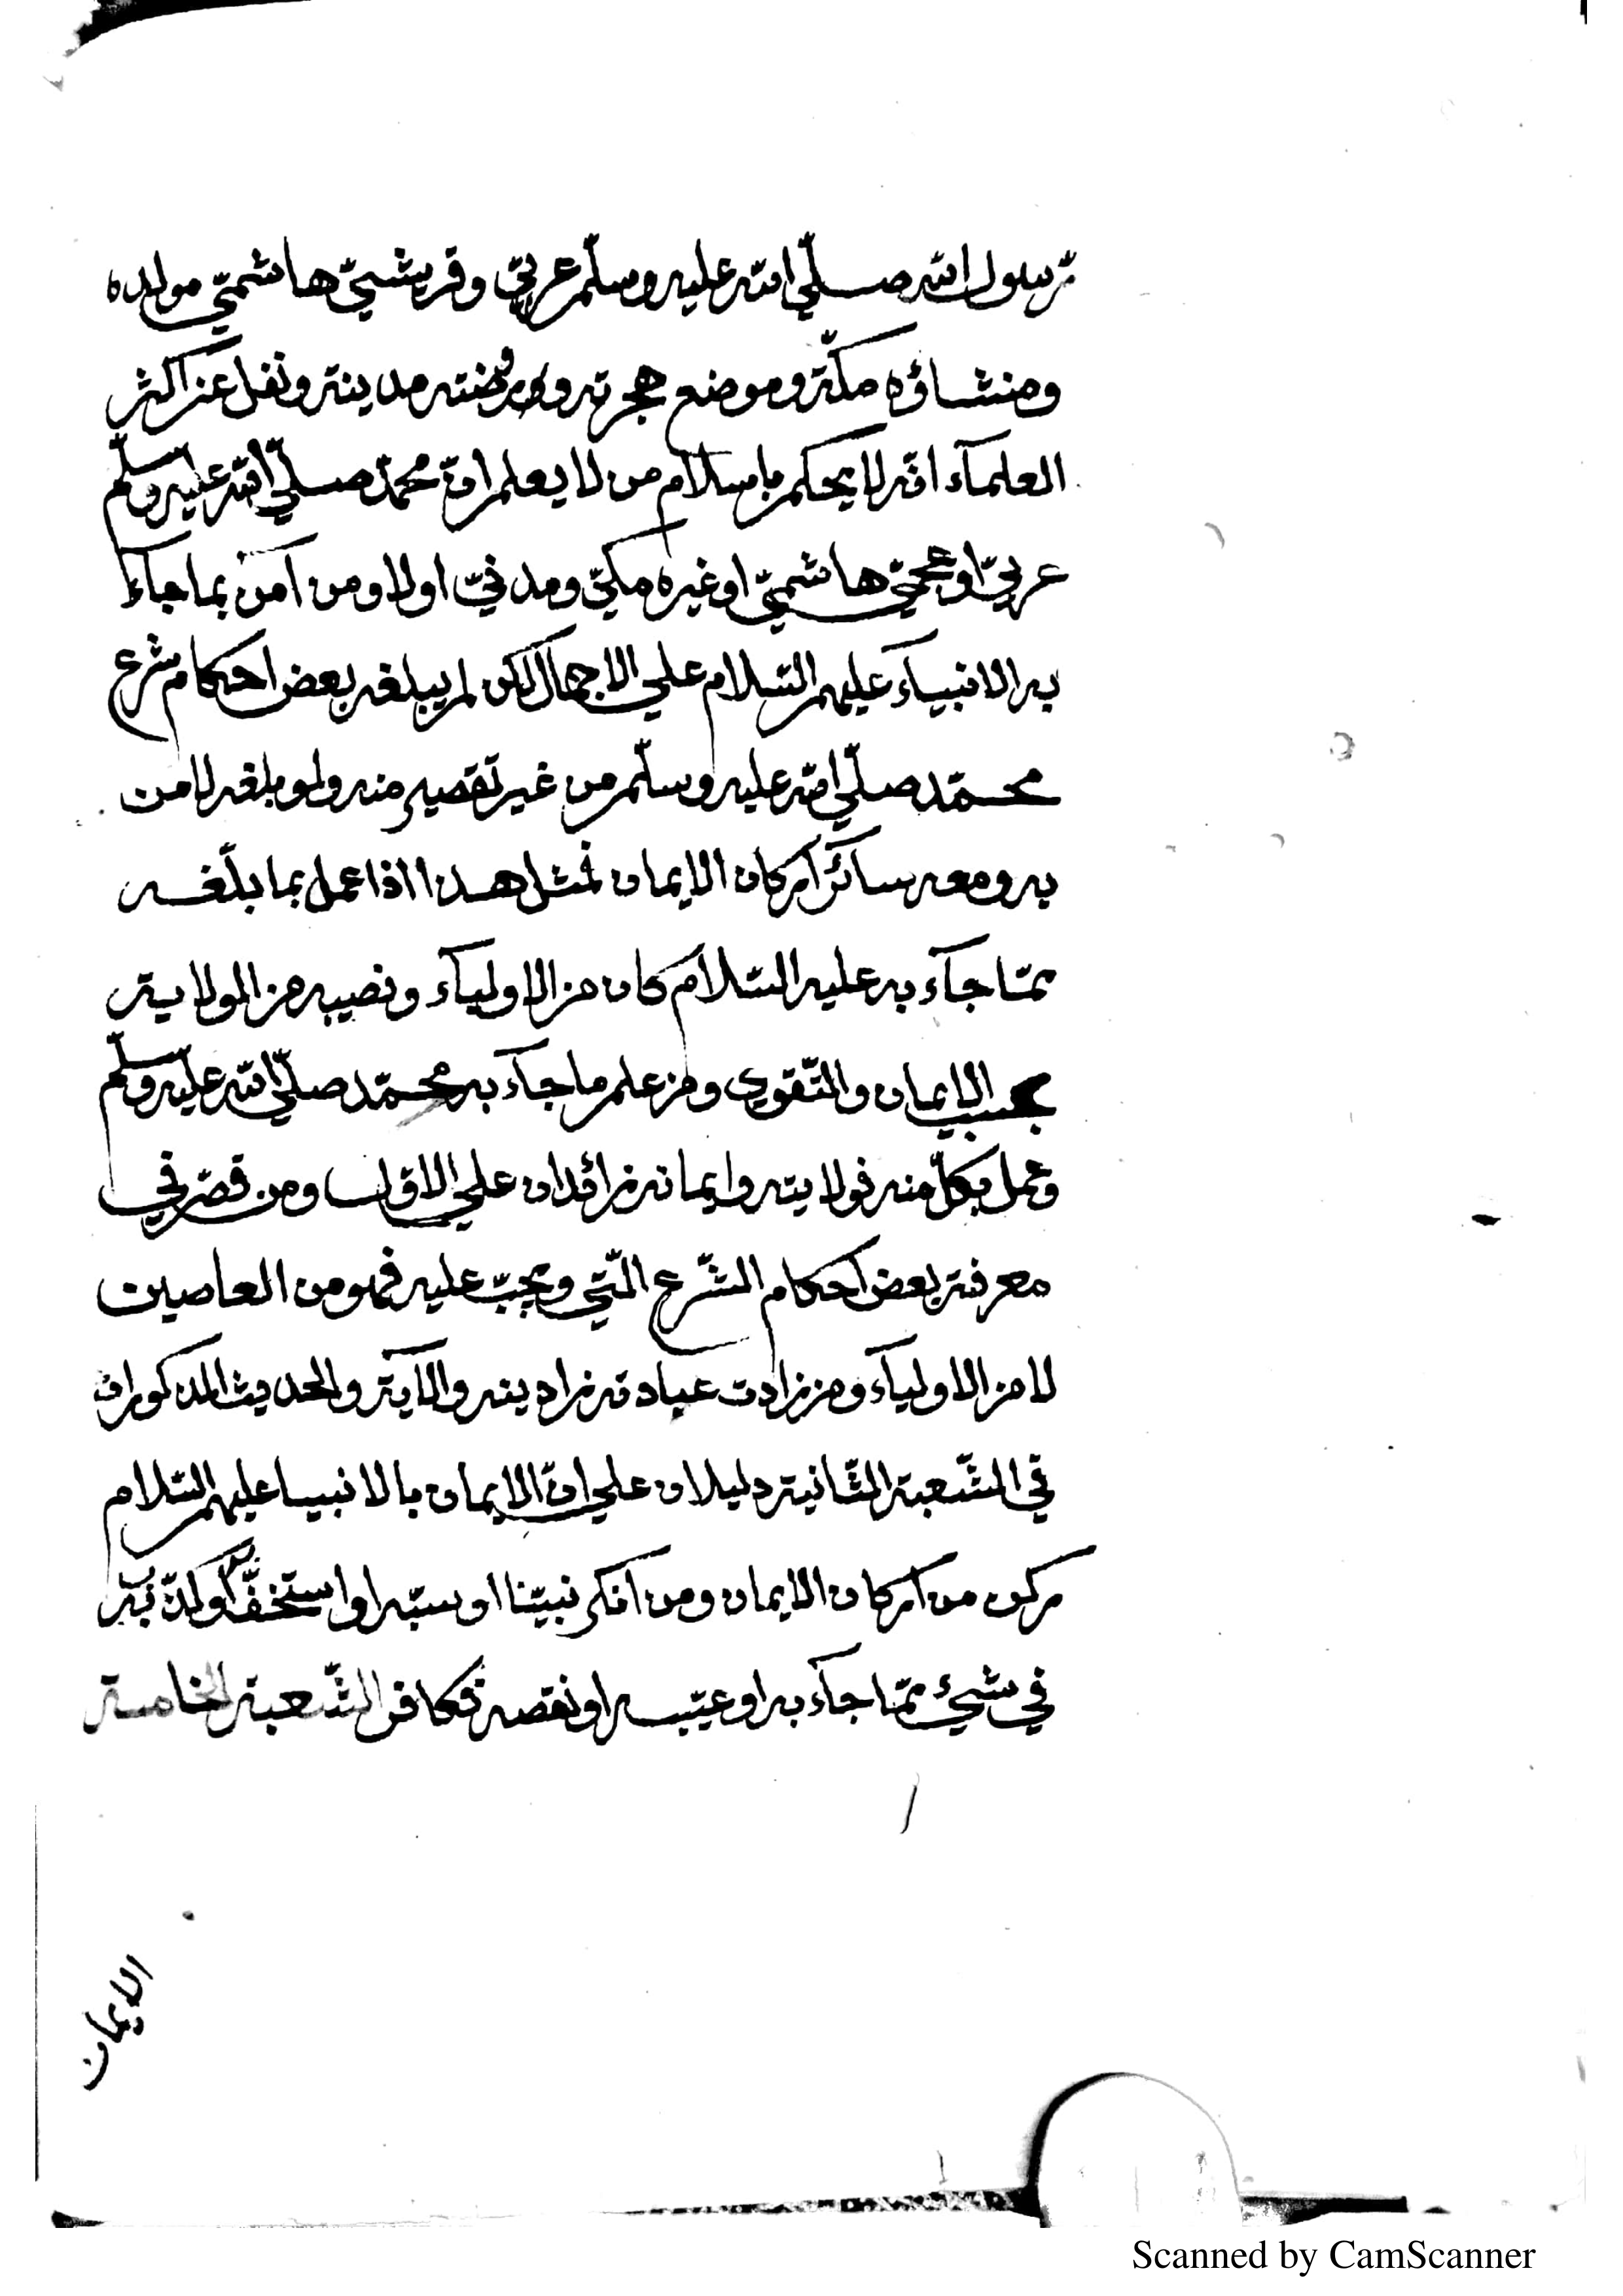 رسول الله صلّي الله عليه وسلّم عربيّ وقريشيّ هاشميّ مولده
ومنشاؤه مكّة وموضع هجرته وروضته مدينة ونقل عن اكثر
العلمآء انّه لا يحكم باسلام من لا يعلم انّ محمّد صلّي الله عليه وسلّم
عربيّ او عجميّ هاشميّ او غيره مكيّ ومدنيّ اولا ومن آمن بما جآء
به الانبيآء عليهم السّلام علي الاجمال لكن لم يبلغه بعض احكام شرع
محمّد صلّي الله عليه وسلّم من غير تقصير منه ولو بلغه لامن
به ومعه سائر اركان الايمان فمثل هذا اذا عمل بما بلّغه
ممّا جآء به عليه السّلام كان من الاوليآء ونصيبه من الولاية
بحسب الايمان والتّقوي ومن علم ما جآء به محمّد صلّي الله عليه وسلّم
وعمل بكلّ منه فولايته وايمانه زائدان علي الاوّل ومن قصّر في
معرفة بعض احكام الشّرع الّتي ويجبّ عليه فهو من العاصين
لا من الاوليآء ومن زادت عبادته زاد ينه والآية والحديث المذكوران
في الشّعبة الثّانية دليلان علي انّ الايمان بالانبيا عليهم السّلام
ركن من اركان الايمان ومن انكر نبيّنا او سبّه او استخفّ او كذّبه
في شيئ ممّا جآء به او عيّبه او نقصه فكافر الشّعبة الخامسة
الايمان
Scanned by CamScanner